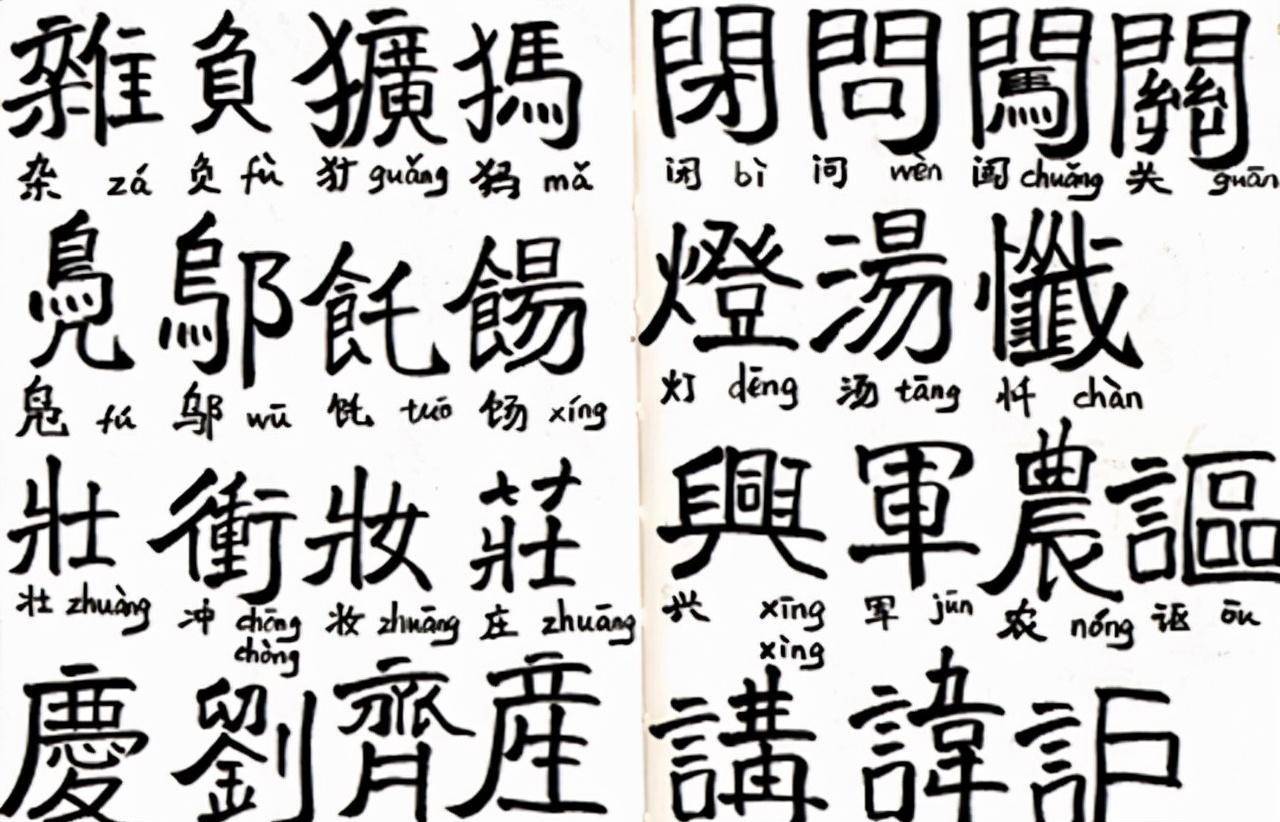 雜 負 獷 獁
杂 zá 负 fù 犷 guǎng 犸 mǎ
鳧 鄔 飥 餳
凫 fú 邬 wū 饦 tuō 饧 xíng
壯 衝 妝 莊
壮 zhuàng 冲 chōng 妆 zhuāng 庄 zhuāng
chòng
慶 劉 齊 産
閉 問 闖 關
闭 bì 问 wèn 闯 chuǎng 关 guān
燈 湯 懺
灯 dēng 汤 tāng 忏 chàn
興 軍 農 謳
兴 xīng 军 jūn 农 nóng 讴 ōu
xìng
講 諱 詎